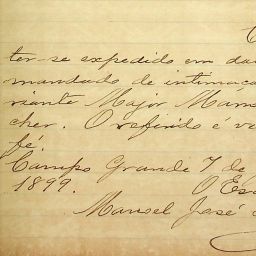 C
ter-se expedido em da
mandado de intimaca
riante Major Mam
cher. O referido é v
fé.
Campo Grande 7 de
1899. O Es
Manoel José